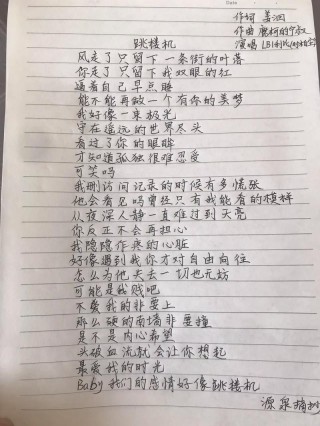 Date
作词 姜泗
跳楼机
演唱 LBI利比(时柏尘)
风走了只留下一条街的叶落
你走了只留下我双眼的红
逼着自己早点睡
能不能再做一个有你的美梦
我好像一束极光
守在遥远的世界尽头
看过了你的眼眸
才知道孤独很难忍受
可笑吗
我删访问记录的时候有多慌张
他会看见吗曾经只有我能看的模样
从夜深人静一直难过到天亮
你反正不会再担心
我隐隐作疼的心脏
好像遇到我你才对自由向往
怎么为他失去一切也无妨
可能是我贱吧
不爱我的非要上
那么硬的南墙非要撞
是不是内心希望
头破血流就会让你想起
最爱我的时光
Baby我们的感情好像跳楼机
源泉摘抄